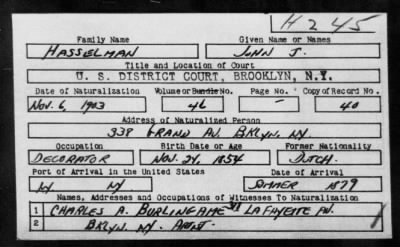 H 245
Family Name Given Name or Names
HASSELMAN JOHN J.
Title and Location of Court
U. S. DISTRICT COURT, BROOKLYN, N.Y.
Date of Naturalization Volume or Bundle No. Page No. Copy of Record No.
Nov. 6, 1903 46 - 40
Address of Naturalized Person
338 GRAND AV. BKLYN. NY.
Occupation Birth Date or Age Former Nationality
DECORATOR NOV. 24, 1854 DUTCH.
Port of Arrival in the United States Date of Arrival
NY NY SUMMER 1879
Names, Addresses and Occupations of Witnesses To Naturalization
1 CHARLES A. BURLINGAME LAFAYETTE AV.
2 BKLYN. NY.